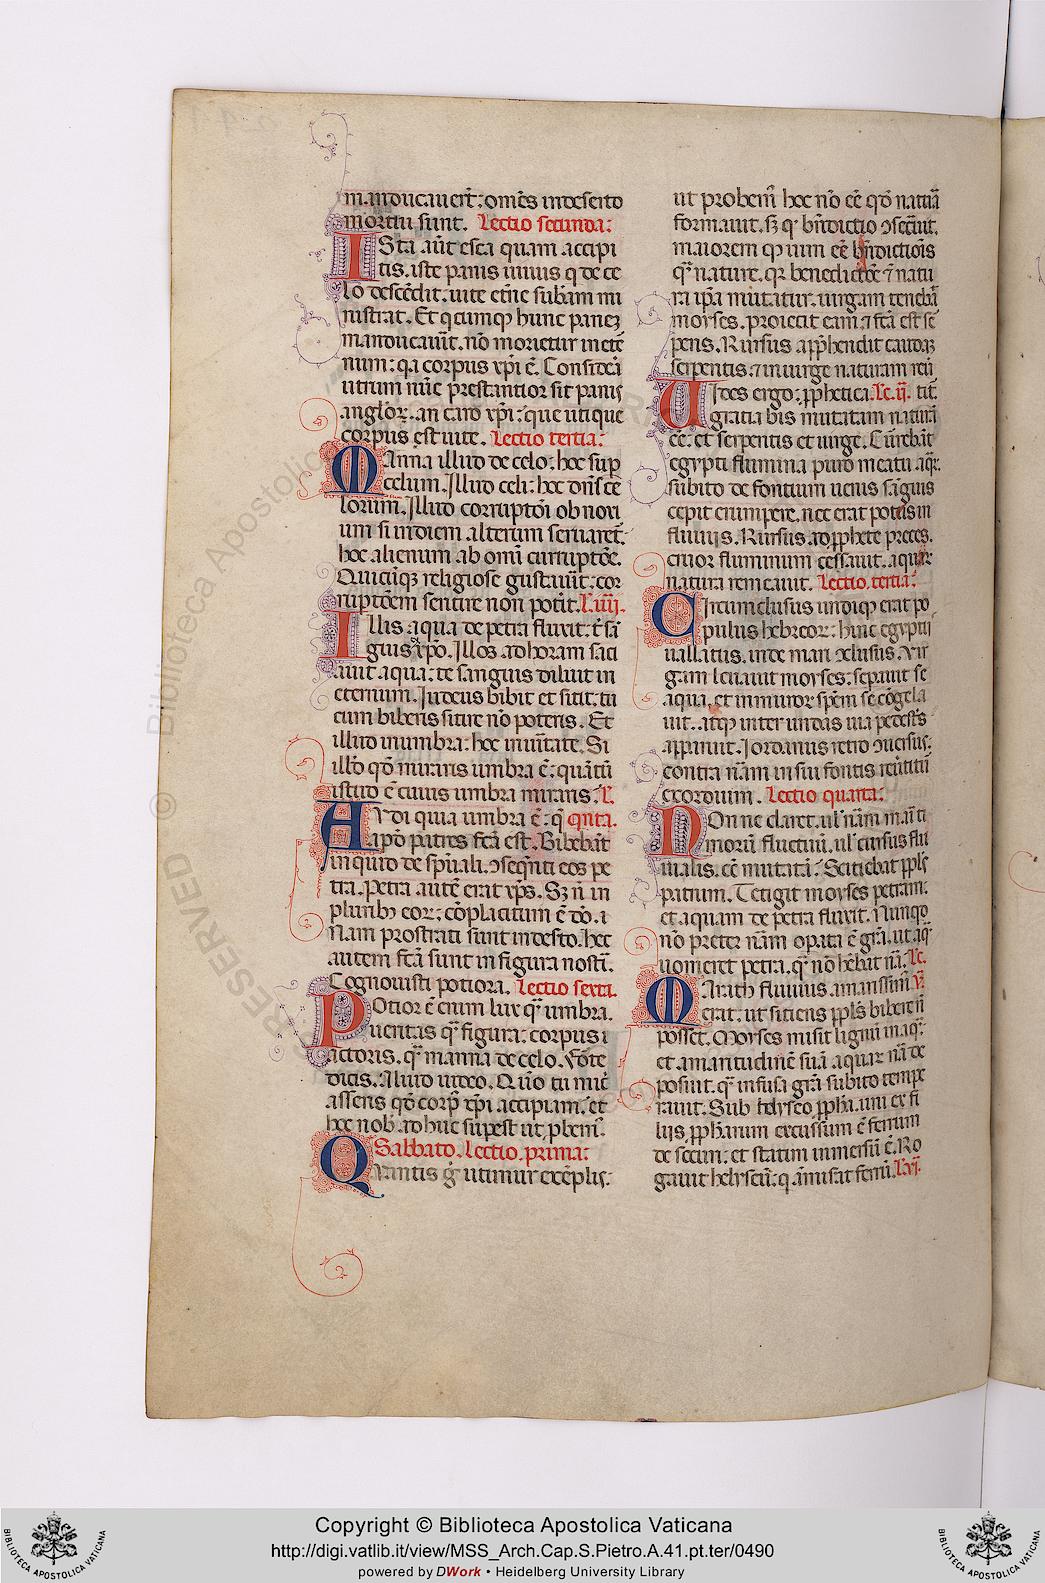 manducauer̄t: om̄es in deserto
mortui sunt. Lectio secunda:
ISta aūt esca quam accipi
tis. iste panis uiuus q de ce
lo descēdit: uite et̄ne sub̄am mi
nistrat. Et qcumqꝫ hunc panez
manducau̅it. nō morietur in etē
num: qa corpus xp̄i ē. Considera
utrum nūc prestantior sit panis
anglorꝝ. an caro xp̄i: que utique
corpus est uite. Lectio tertia:
MAnna illud de celo: hoc sup
celum. Illud celi: hoc dn̄i ce
lorum. Illud corruptōi obnoxi
um si in diem alterum seruaret̄.
hoc alienum ab omī corruptōe.
Quicūqꝫ religiose gustauīt: cor
ruptōem sentire non potit̄. L. iiij.
ILlis aqua de petra fluxit: t̄ sā
guis ex xp̄o. Illos ad horam saci
auit aqua: te sanguis diluit in
eternum. Iudeus bibit et sitit: tu
cum biberis sitire nō poteris. Et
illud in umbra: hoc in uītate. Si
illd̄ qd̄ miraris umbra ē: quātū
istud ē cuius umbra miraris. L.
AUdi quia umbra ē: q̄ qnta.
apd̄ patres fc̄a est. Bibebāt
inquid de spūali. ꝯseqn̄ti eos pe
tra. Petra autē erat xp̄s. Sꝫ n̄ in
pluribꝫ eorꝝ: cōplacitum ē dō. i
Nam prostrati sunt in desto. hec
autem fc̄a sunt in figura nostri̅.
Cognouisti potiora. Lectio sexta.
POtior ē enim lux qꝫ umbra.
Ueritas qꝫ figura: corpus i
actoris. qꝫ manna de celo. Forte
dicis. Aliud uideo. Quō tu mic̄
asseris qd̄ corp̄ xp̄i accipiam: et
hec nob̄ adhuc supest ut p̱bem̄.
Sabbato. Lectio. prima:
QUantis g̊ utimur exēplis:
ut probem̄ hoc nō eē qd̄ natūa
formauit. sꝫ qꝫ bn̄dictio ꝯsec̄uit.
maiorem qꝫ uim eē bn̄dictiōis
qꝫ nature. qꝛ benedictōe ⁊ natu
ra ip̄a mutatur. uirgam tenebā
moyses. proiecit eam ⁊ fc̄a est sē
pens. Rursus app̄hendit caudaꝫ
serpentis. ⁊ in uirge naturam reū
UIdes ergo: p̱phetica Lc. ij. tit̄.
gratia bis mutatam naturā
eē: et serpentis et uirge. Currebāt
egypti flumina puro meatu aqꝝ.
subito de fontium uenis sāguis
cepit erumpere. nec erat potus in
fluuijs. Rursus. ad p̱phete preces.
cruor fluminum cessauit. aquaꝝ
natura remeauit. Lectio. tertia:
CIrcumclusus undiqꝫ erat po
pulus hebreorꝝ: hinc egyptij
uallatus. inde mari ꝯclusus. Vir
gam leuauit moyses: sepauit se
aqua. et in muror̄ spēm se cōgela
uit. atqꝫ inter undas uia pedest̄s
apparuit. Iordanus retro ꝯuersus:
contra nām in sui fontis reūtitū
exordium. Lectio quarta:
NOnne claret. ul̄ nām mariti
morū fluctuū. ul̄ cursus flu
uialis. eē mutatā: Sitiebat pp̄ls
patrum. Tetigit moyses petram:
et aquam de petra fluxit. Nunqd
nō preter nām opata ē grā. ut aqꝫ
uomeret petra. qꝫ nō hēbat nā. Lc.
MArath fluuius amarissim̄ v̄.
erat: ut sitiens pp̄ls̄ bibere n̄
posset. Moyses misit lignū in aqꝫ:
et amaritudinē suā aquaꝝ nā de
posuit. qꝫ infusa grā subito tempe
rauit. Sub helyseo p̱pha. uni ex fi
liis p̱pharum excussum ē ferrum
de secūri: et statim inmersū ē. Ro
gauit helyseū: q amiserat ferrū. L. vj.
RESERVED © Biblioteca Apostolica
BIBLIOTECA APOSTOLICA VATICANA
Copyright © Biblioteca Apostolica Vaticana
http://digi.vatlib.it/view/MSS_Arch.Cap.S.Pietro.A.41.pt.ter/0490
powered by DWork • Heidelberg University Library
BIBLIOTECA APOSTOLICA VATICANA